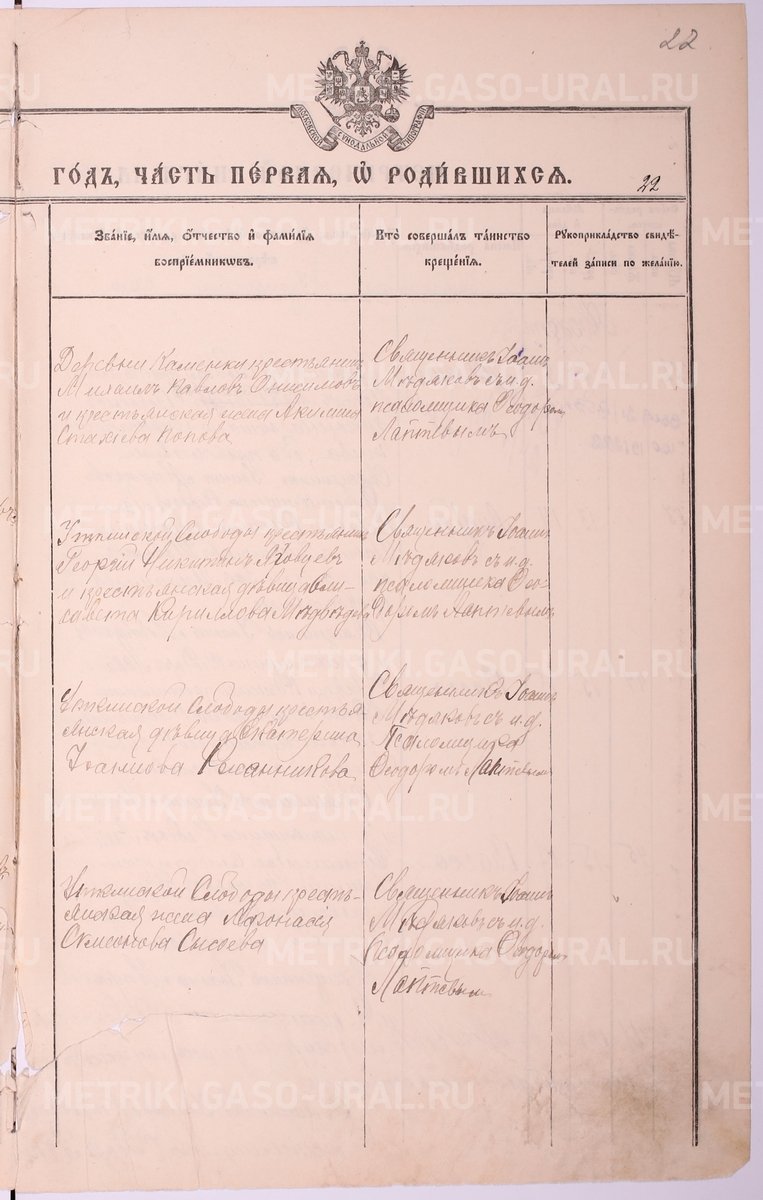 22
МОСКОВСКОЙ СѴНОДАЛЬНОЙ ТИПОГРАФІИ
ГОДЪ, ЧАСТЬ ПЕРВАЯ, Ѡ РОДИВШИХСЯ.
22
Званіе, имя, отчество и фамилія воспріемниковъ.
Кто совершалъ таинство крещенія.
Рукоприкладство свидѣтелей записи по желанію.
Деревни Каменки крестьянинъ
Михаилъ Павловъ Онисимовъ
и крестьянская жена Акилина
Стахіева Попова
Священникъ Іоаннъ
Мѣдяковъ съ и. д.
псаломщика Ѳеодоромъ
Лаптевымъ
Уткинской Слободы крестьянинъ
Георгій Никитинъ Яговцев
и крестьянская дѣвица Ели-
савета Кириллова Медвѣдева
Священникъ Іоаннъ
Мѣдяковъ съ и. д.
псаломщика Ѳео-
доромъ Лаптевымъ
Уткинской Слободы крестья-
янская дѣвица Екатерина
Іоаннова
Священникъ Іоаннъ
Мѣдяковъ съ и. д.
Псаломщика
Ѳеодоромъ Лаптевым
Уткинской Слободы кресть-
янская жена Афонасія
Семенова Сысоева
Священникъ Іоаннъ
Мѣдяковъ съ и. д.
Псаломщика Ѳеодором
Лаптевым
METRIKI.GASO-URAL.RU